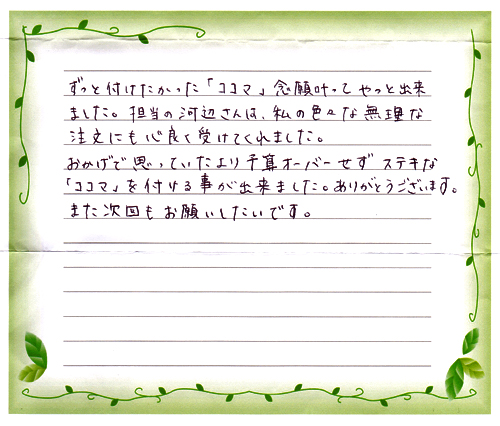 ずっと付けたかった「ココマ」念願叶ってやっと出来
ました。担当の河辺さんは、私の色々な無理な
注文にも心良く受けてくれました。
おかげで思っていたより予算オーバーせずステキな
「ココマ」を付ける事が出来ました。ありがとうございます。
また次回もお願いしたいです。